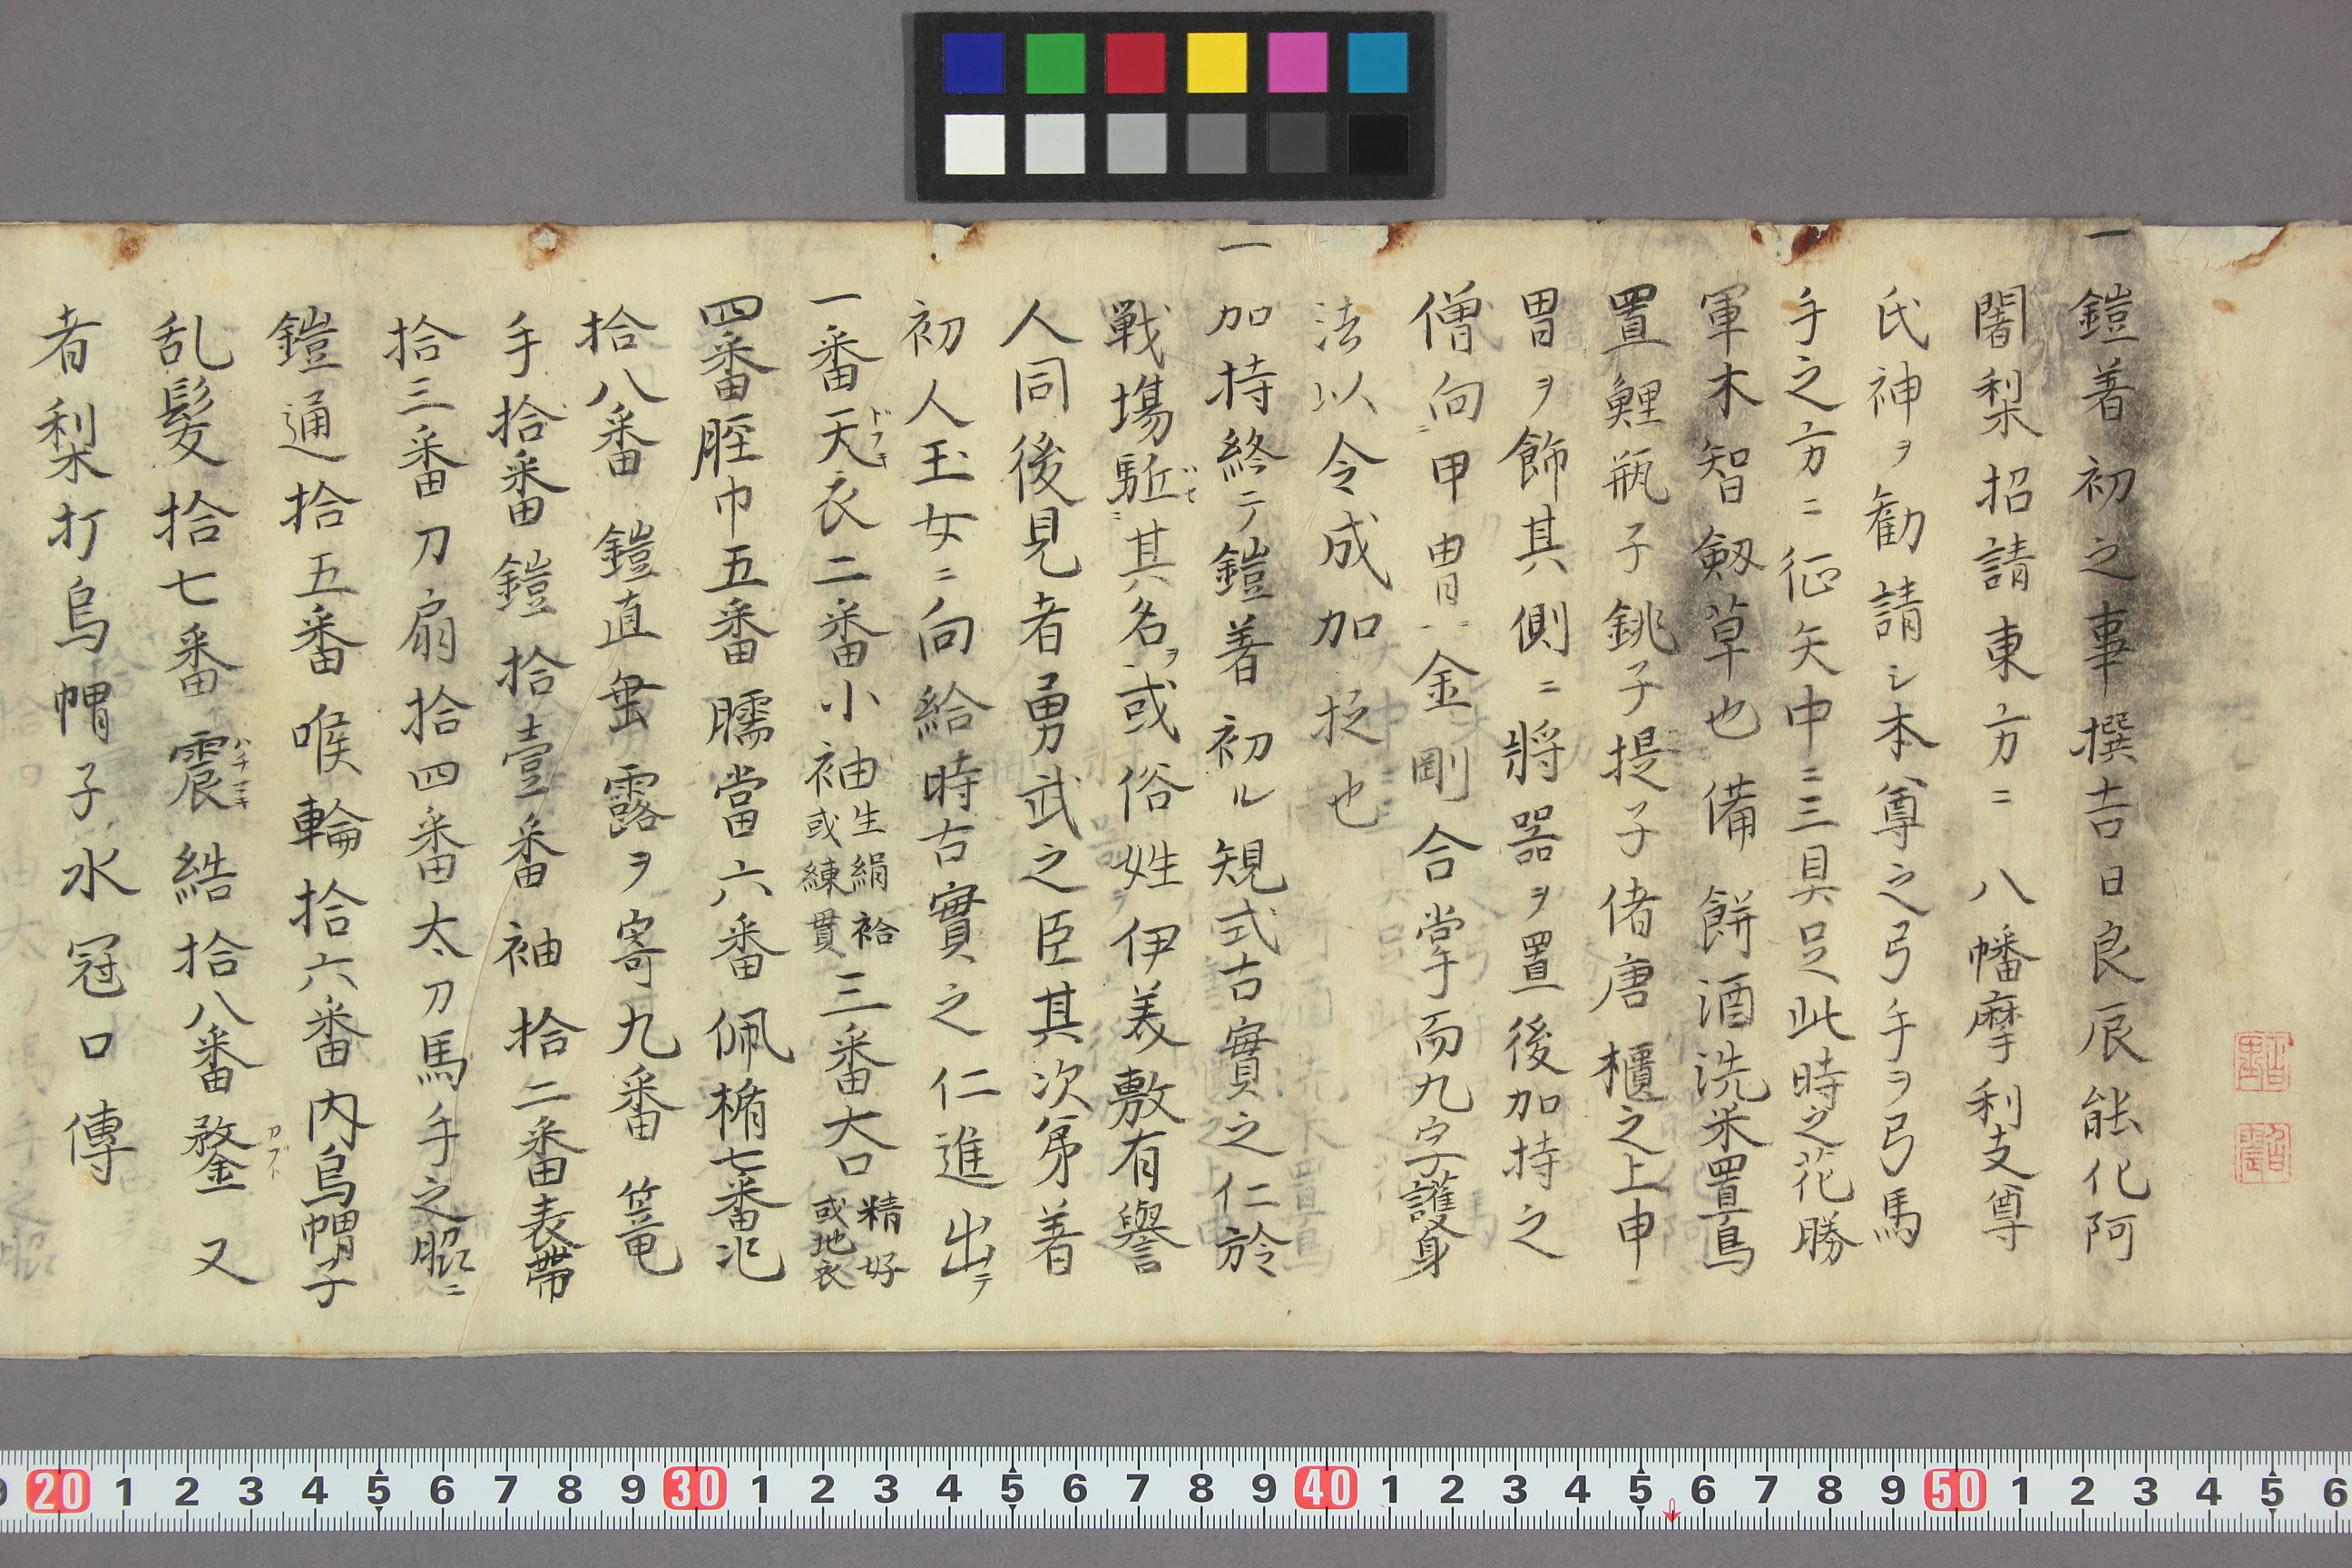 一鎧着初之事撰吉日良辰能化阿
闍梨招請東方ニ八幡摩利支尊
氏神ヲ勧請シ本尊之弓手ヲ弓馬
手之方ニ征矢中ニ三具足此時之花勝
軍木智剱草也備餅酒洗米置鳥
置鯉瓶子銚子提子偖唐櫃之上申
冑ヲ飾其側ニ將器ヲ置後加持之
僧向甲冑金剛合掌而九字護身
法以令成加持也
一加持終テ鎧着初ル規式古實之仁於
戦塲駈其名ヲ或俗姓伊美敷有譽
人同後見者勇武之臣其次第着
初人玉女ニ向給時古實之仁進出テ
一番天衣二番小袖生絹袷或練貫三番大口精好或地衣
四番脛巾五番臑當六番佩楯七番
拾八番鎧直垂露ヲ寄九番篭
手拾番鎧拾壹番袖拾二番表帶
拾三番刀扇拾四番太刀馬手之脇ニ
鎧通拾五番喉輪拾六番内烏帽子
乱髪拾七番震結拾八番鍪又
者梨打烏帽子水冠口傳
20 1 2 3 4 5 6 7 8 9 30 1 2 3 4 5 6 7 8 9 40 1 2 3 4 5 6 7 8 9 50 1 2 3 4 5 6